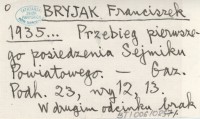 BRYJAK Franciszek
1935... Przebieg pierwsze-
go posiedzenia Sejmiku
Powiatowego. — Gaz.
Podh. 23, nry 12, 13.
W drugim odcinku brak